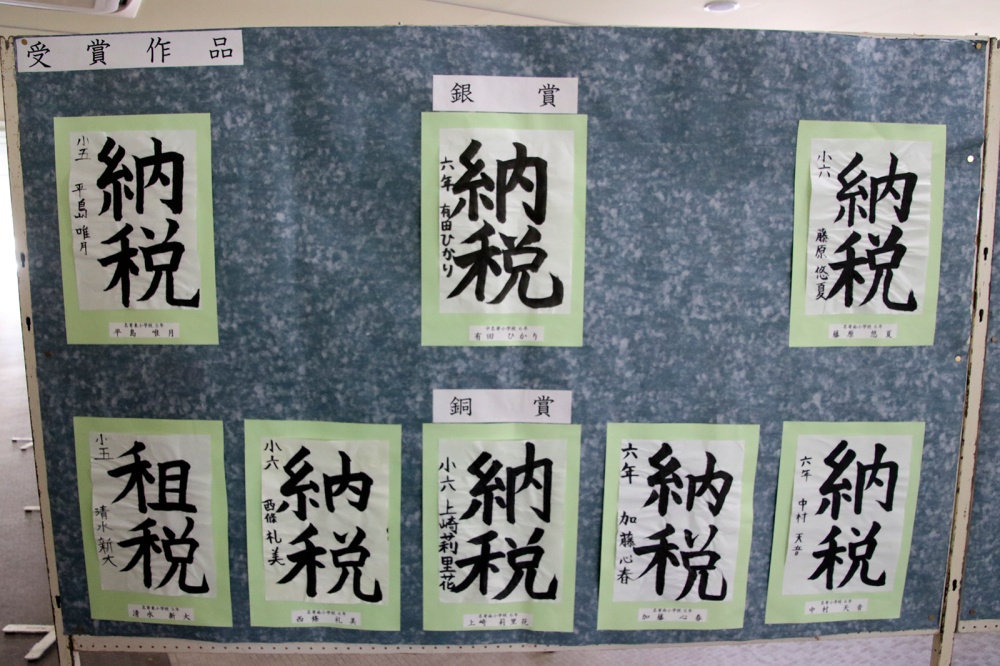 受賞作品
銀賞
小五 平島唯月
納税
平島 唯月
六年 有田ひかり
納税
有田 ひかり
小六 藤原悠夏
納税
藤原 悠夏
銅賞
小五 清水新大
租税
清水 新大
小六 西條礼美
納税
西條 礼美
小六 上崎莉里花
納税
上崎 莉里花
六年 加藤心春
納税
加藤 心春
六年 中村天音
納税
中村 天音